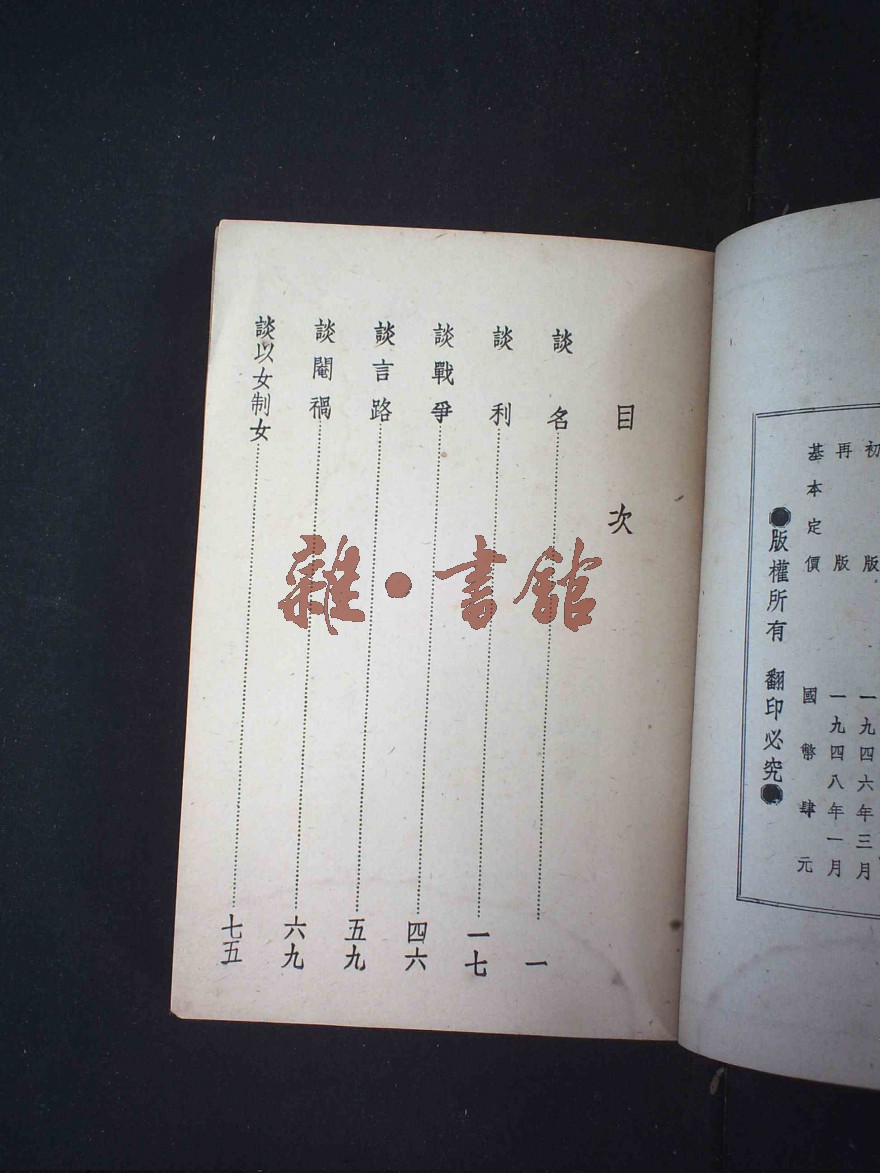 初版 一九四六年三月
再版 一九四八年一月
基本定價 國幣肆元
●版權所有 翻印必究●
目次
談名 一
談利 一七
談戰爭 四六
談言路 五九
談閹禍 六九
談以女制女 七五
雜·書館